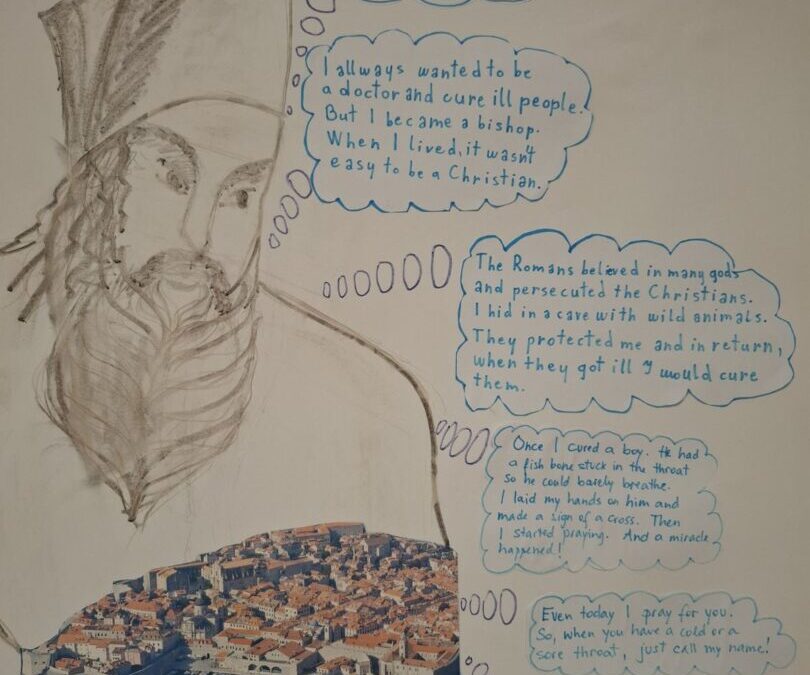 I allways wanted to be
a doctor and cure ill people.
But I became a bishop.
When I lived, it wasn't
easy to be a Christian.
The Romans believed in many gods
and persecuted the Christians.
I hid in a cave with wild animals.
They protected me and in return,
when they got ill I would cure
them.
Once I cured a boy. He had
a fish bone stuck in the throat
so he could barely breathe.
I laid my hands on him and
made a sign of a cross. Then
I started praying. And a miracle
happened!
Even today I pray for you.
So, when you have a cold or a
sore throat, just call my name!